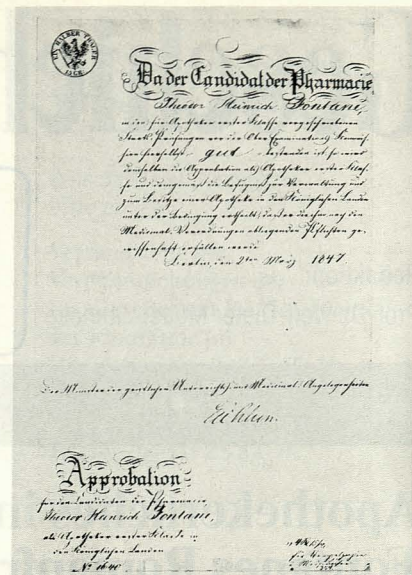 Da der Candidat der Pharmacie
Theodor Heinrich Fontane,
in den für Apotheker erster Klasse vorgeschriebenen
Staats-Prüfungen vor der Ober-Examinations-
gut bestanden ist, so wird
demselben die Approbation als Apotheker erster
und demgemäß die Befugniß zur Verwaltung und
zum Besitze einer Apotheke in den Königlichen Landen
unter der Bedingung ertheilt, daß er die ihm nach den
Medicinal-Verordnungen obliegenden Pflichten
Berlin, den 2ten März 1847
Der Minister der geistlichen Unterrichts und Medicinal-Angelegenheiten
Eichhorn.
Approbation
für den Candidaten der Pharmacie
Theodor Heinrich Fontane,
als Apotheker erster Klasse in
den Königlichen Landen
№ 1640